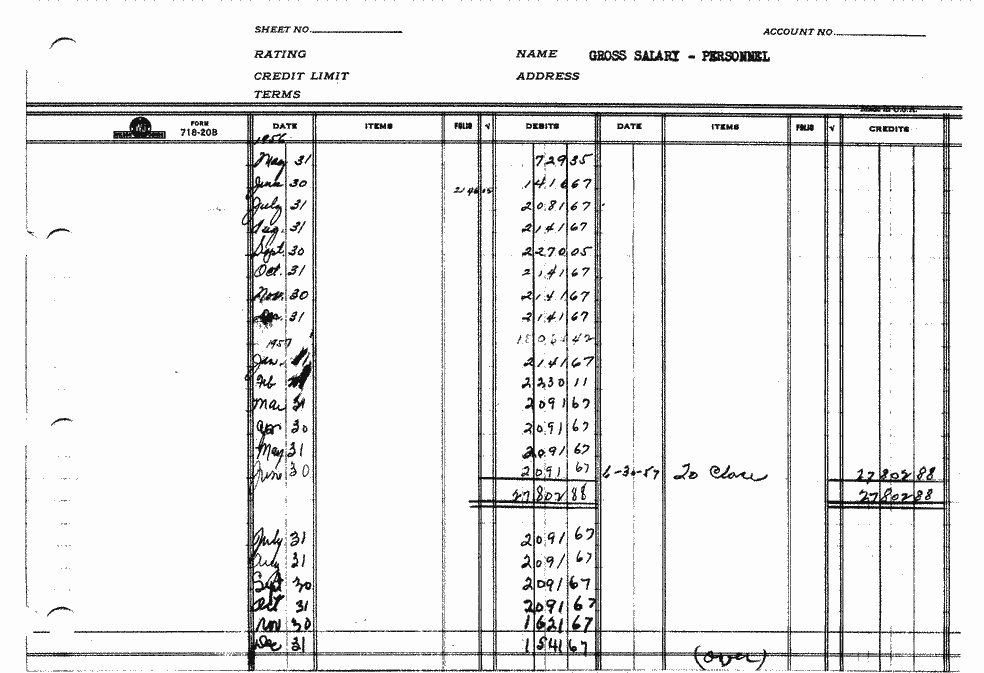 SHEET NO.
ACCOUNT NO.
RATING NAME GROSS SALARY - PERSONNEL
CREDIT LIMIT ADDRESS
TERMS
Made in U.S.A.
FORM 718-20B
DATE ITEMS FOLIO √ DEBITS DATE ITEMS FOLIO √ CREDITS
1956
May 31 729 35
June 30 1416 67
July 31 2081 67
Aug. 31 2141 67
Sept. 30 2270 05
Oct. 31 2141 67
Nov. 30 2141 67
Dec 31 2141 67
1957 15064 42
Jan. 2141 67
Feb 2230 11
Mar 31 2091 67
Apr 30 2091 67
May 31 2091 67
June 30 2091 67 6-30-57 To Close 27802 88
27802 88 27802 88
July 31 2091 67
Aug 31 2091 67
Sept 30 2091 67
Oct 31 2091 67
Nov 30 1621 67
Dec 31 1541 67
(over)